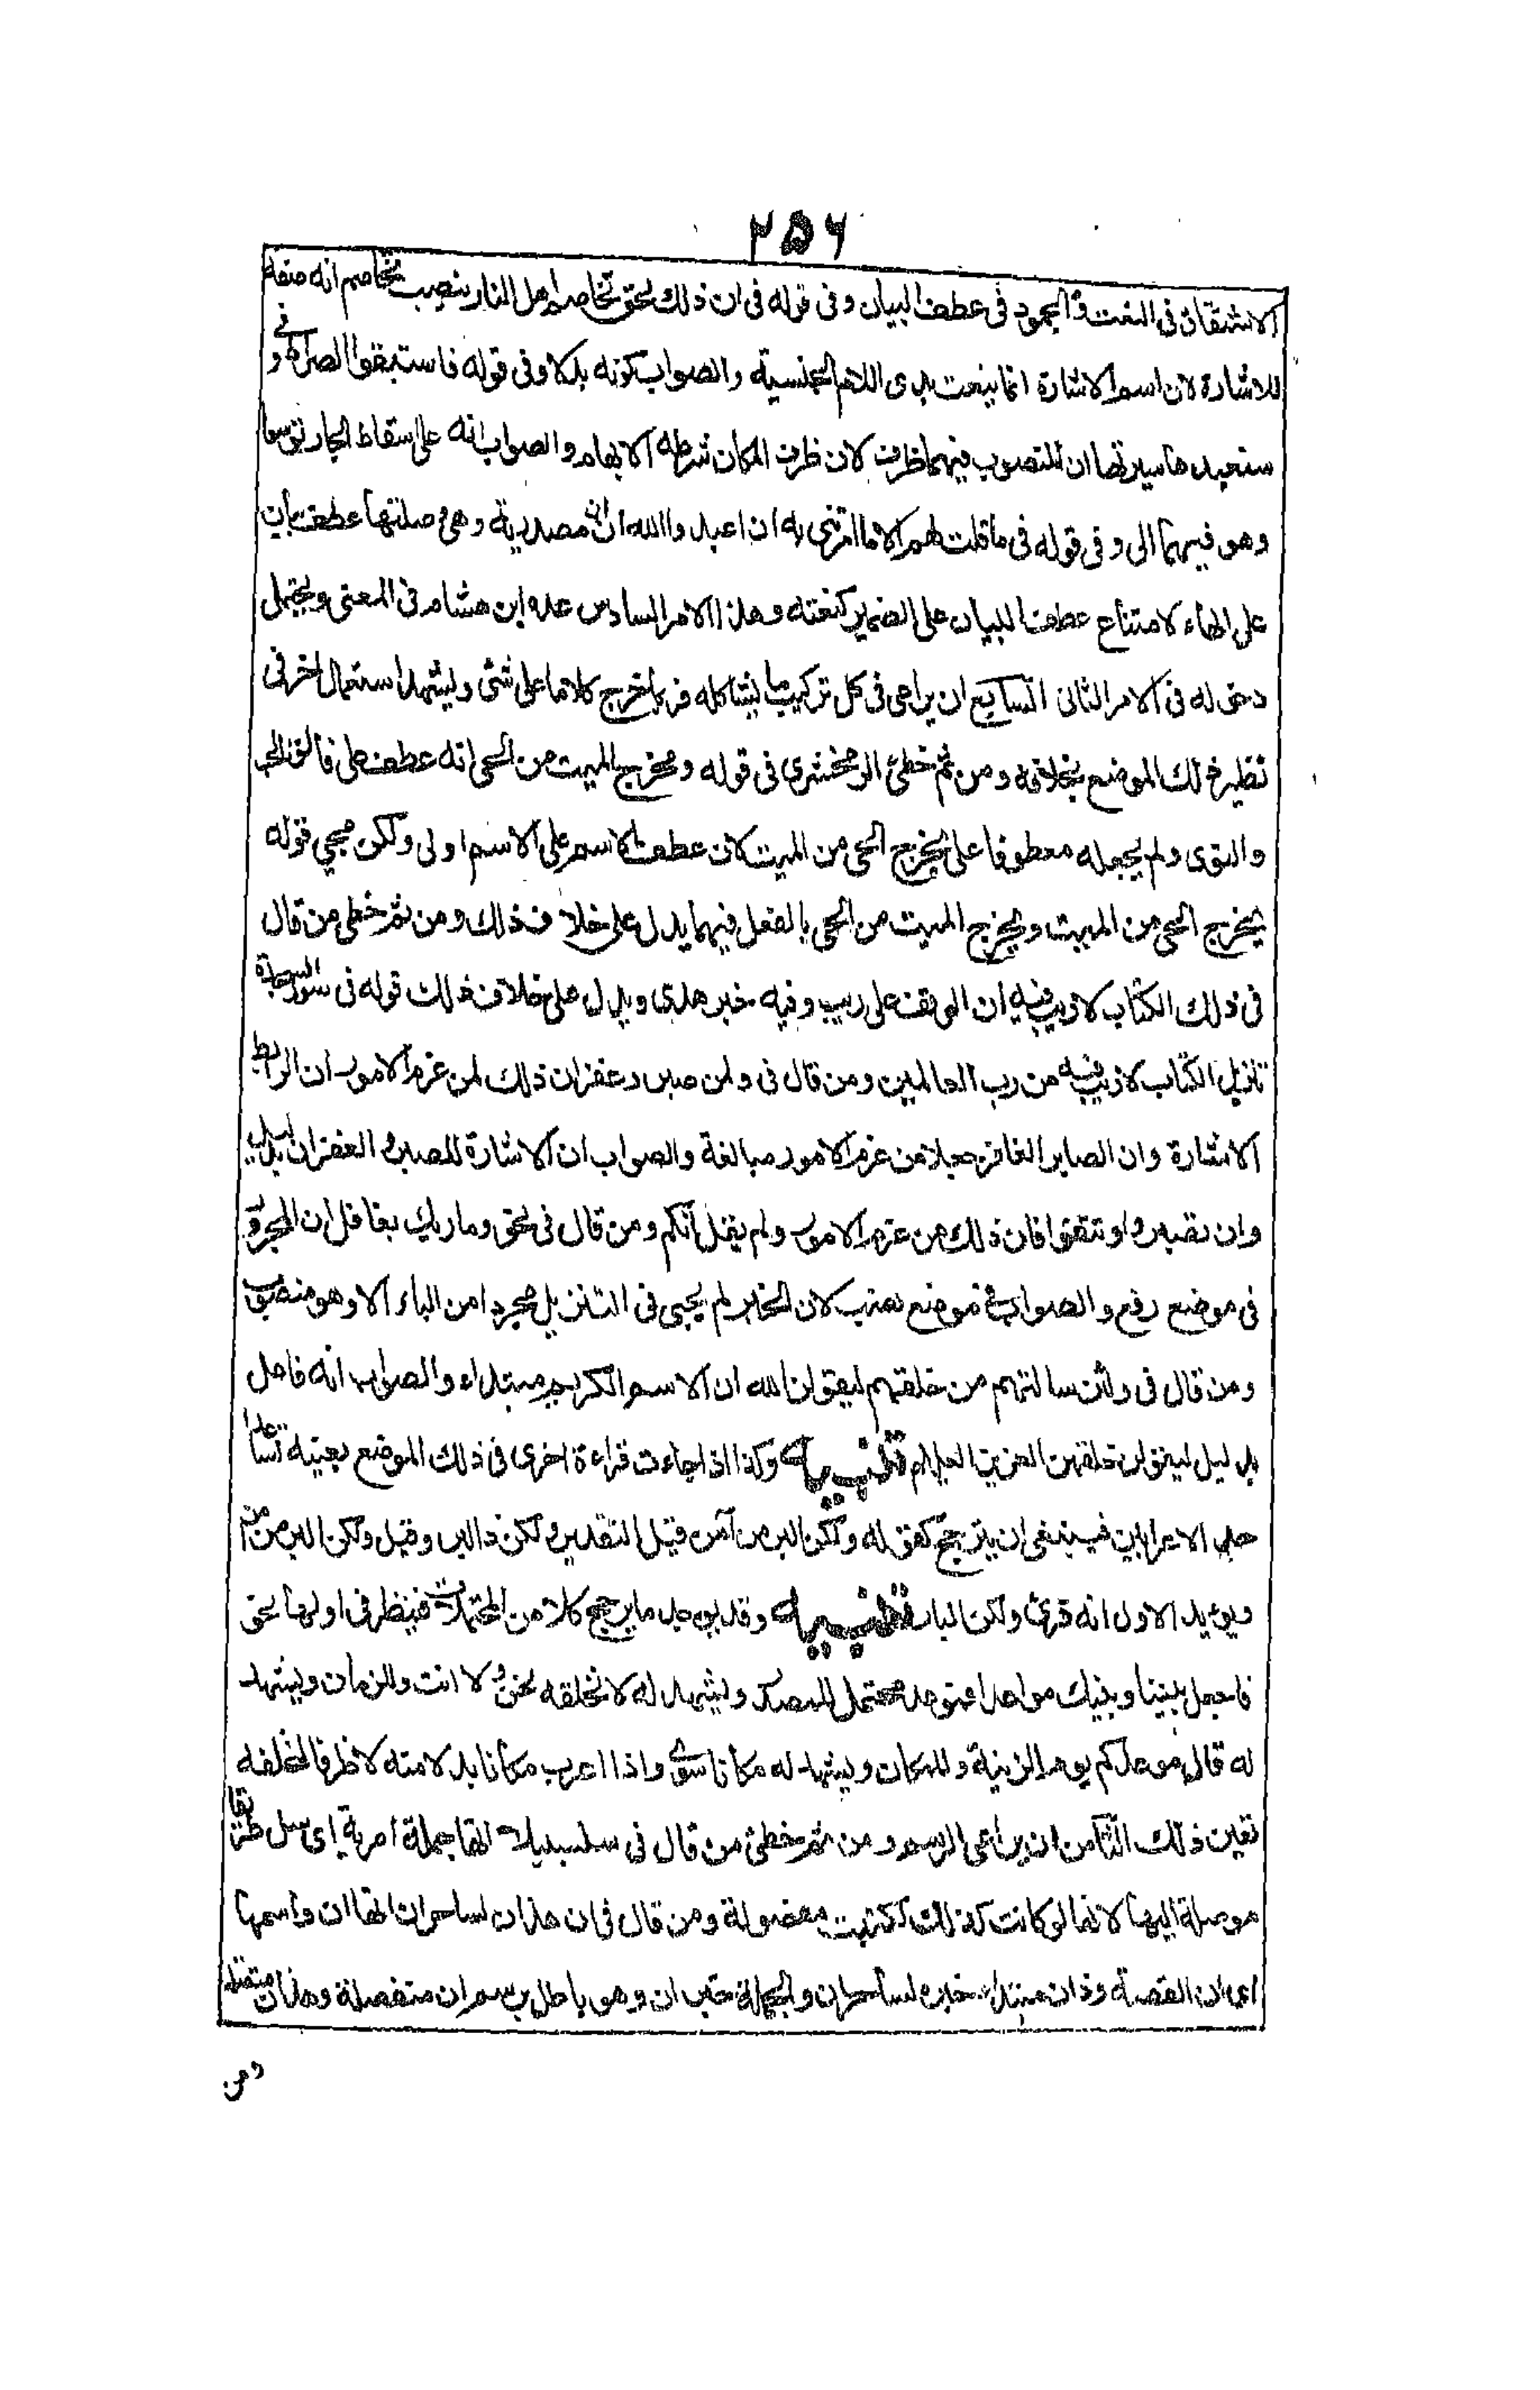 ٢٥٦
الاشتقاق فى النعت والجمود فى عطف البيان وفى قوله فى ان ذلك لحق تخاصم اهل النار بنصب تخاصم انه صفة
للاشارة لان اسم الاشارة انما ينعت بذى اللام الجنسية والصواب كونه بدلا وفى قوله فاستبقوا الصراط وفى
سنعيدها سيرتها ان المنصوب فيهما ظرف لان ظرف المكان شرطه الابهام والصواب انه على اسقاط الجار توسعا
وهو فيهما الى وفى قوله فى ما قلت لهم الا ما امرتنى به ان اعبدوا الله ان ان مصدرية وهى وصلتها عطف بيان
على الهاء لامتناع عطف البيان على الضمير كنعته وهذا الامر السادس عده ابن هشام فى المعنى ويحتمل
دخوله فى الامر الثانى السابع ان يراعى فى كل تركيب ما يشاكله فربما خرج كلاما على شئ ويشهد استعمال اخر فى
نظير ذلك الموضع بخلافه ومن ثم خطئ الزمخشرى فى قوله ومخرج الميت من الحى انه عطف على فالق الحب
والنوى ولم يجعله معطوفا على يخرج الحى من الميت لان عطف الاسم على الاسم اولى ولكن مجى قوله
يخرج الحى من الميت ويخرج الميت من الحى بالفعل فيهما يدل على خلاف ذلك ومن ثم خطى من قال
فى ذلك الكتاب لا ريب فيه ان الوقف على ريب وفيه خبر هدى ويدل على خلاف ذلك قوله فى سورة السجدة
تنزيل الكتاب لا ريب فيه من رب العالمين ومن قال فى ولمن صبر وغفر ان ذلك لمن عزم الامور ان الرابط
الاشارة وان الصابر الغافر جعلا من عزم الامور مبالغة والصواب ان الاشارة للصبر والغفران بدليل
وان تصبروا وتتقوا فان ذلك من عزم الامور ولم يقل انكم ومن قال فى نحو وما ربك بغافل ان المجرور
فى موضع رفع والصواب فى موضع نصب لان الخبر لم يجى فى التنزيل مجردا من الباء الا وهو منصوب
ومن قال فى ولئن سالتهم من خلقهم ليقولن الله ان الاسم الكريم مبتداء والصواب انه فاعل
بدليل ليقولن خلقهن العزيز العليم تنبيه وكذا اذا جاءت قراءة اخرى فى ذلك الموضع بعينه تساعد احد
الاعرابين فينبغى ان يترجح كقوله ولكن البر من آمن قيل التقدير ولكن ذا البر وقيل ولكن البر بر من امن
ويؤيد الاول انه قرئ ولكن البار تنبيه وقد يوجد ما يرجح كلا من المحتملات فينظر فى اولها نحو
فاجعل بيننا وبينك موعدا فموعد محتمل للمصدر ويشهد له لا نخلفه نحن ولا انت وللزمان ويشهد
له قال موعدكم يوم الزينة وللمكان ويشهد له مكانا سوى واذا اعرب مكانا بدلا منه لا ظرفا لنخلفه
تعين ذلك الثامن ان يراعى الرسم ومن ثم خطئ من قال فى سلسبيلا انها جملة امرية اى سل طريقا
موصلة اليها لانها لو كانت كذلك لكتبت مفصولة ومن قال فى ان هذان لساحران انها ان واسمها
اى ان القصة وذان مبتدا خبره لساحران والجملة خبر ان وهو باطل برسم ان منفصلة وهذان متصلة
ومن